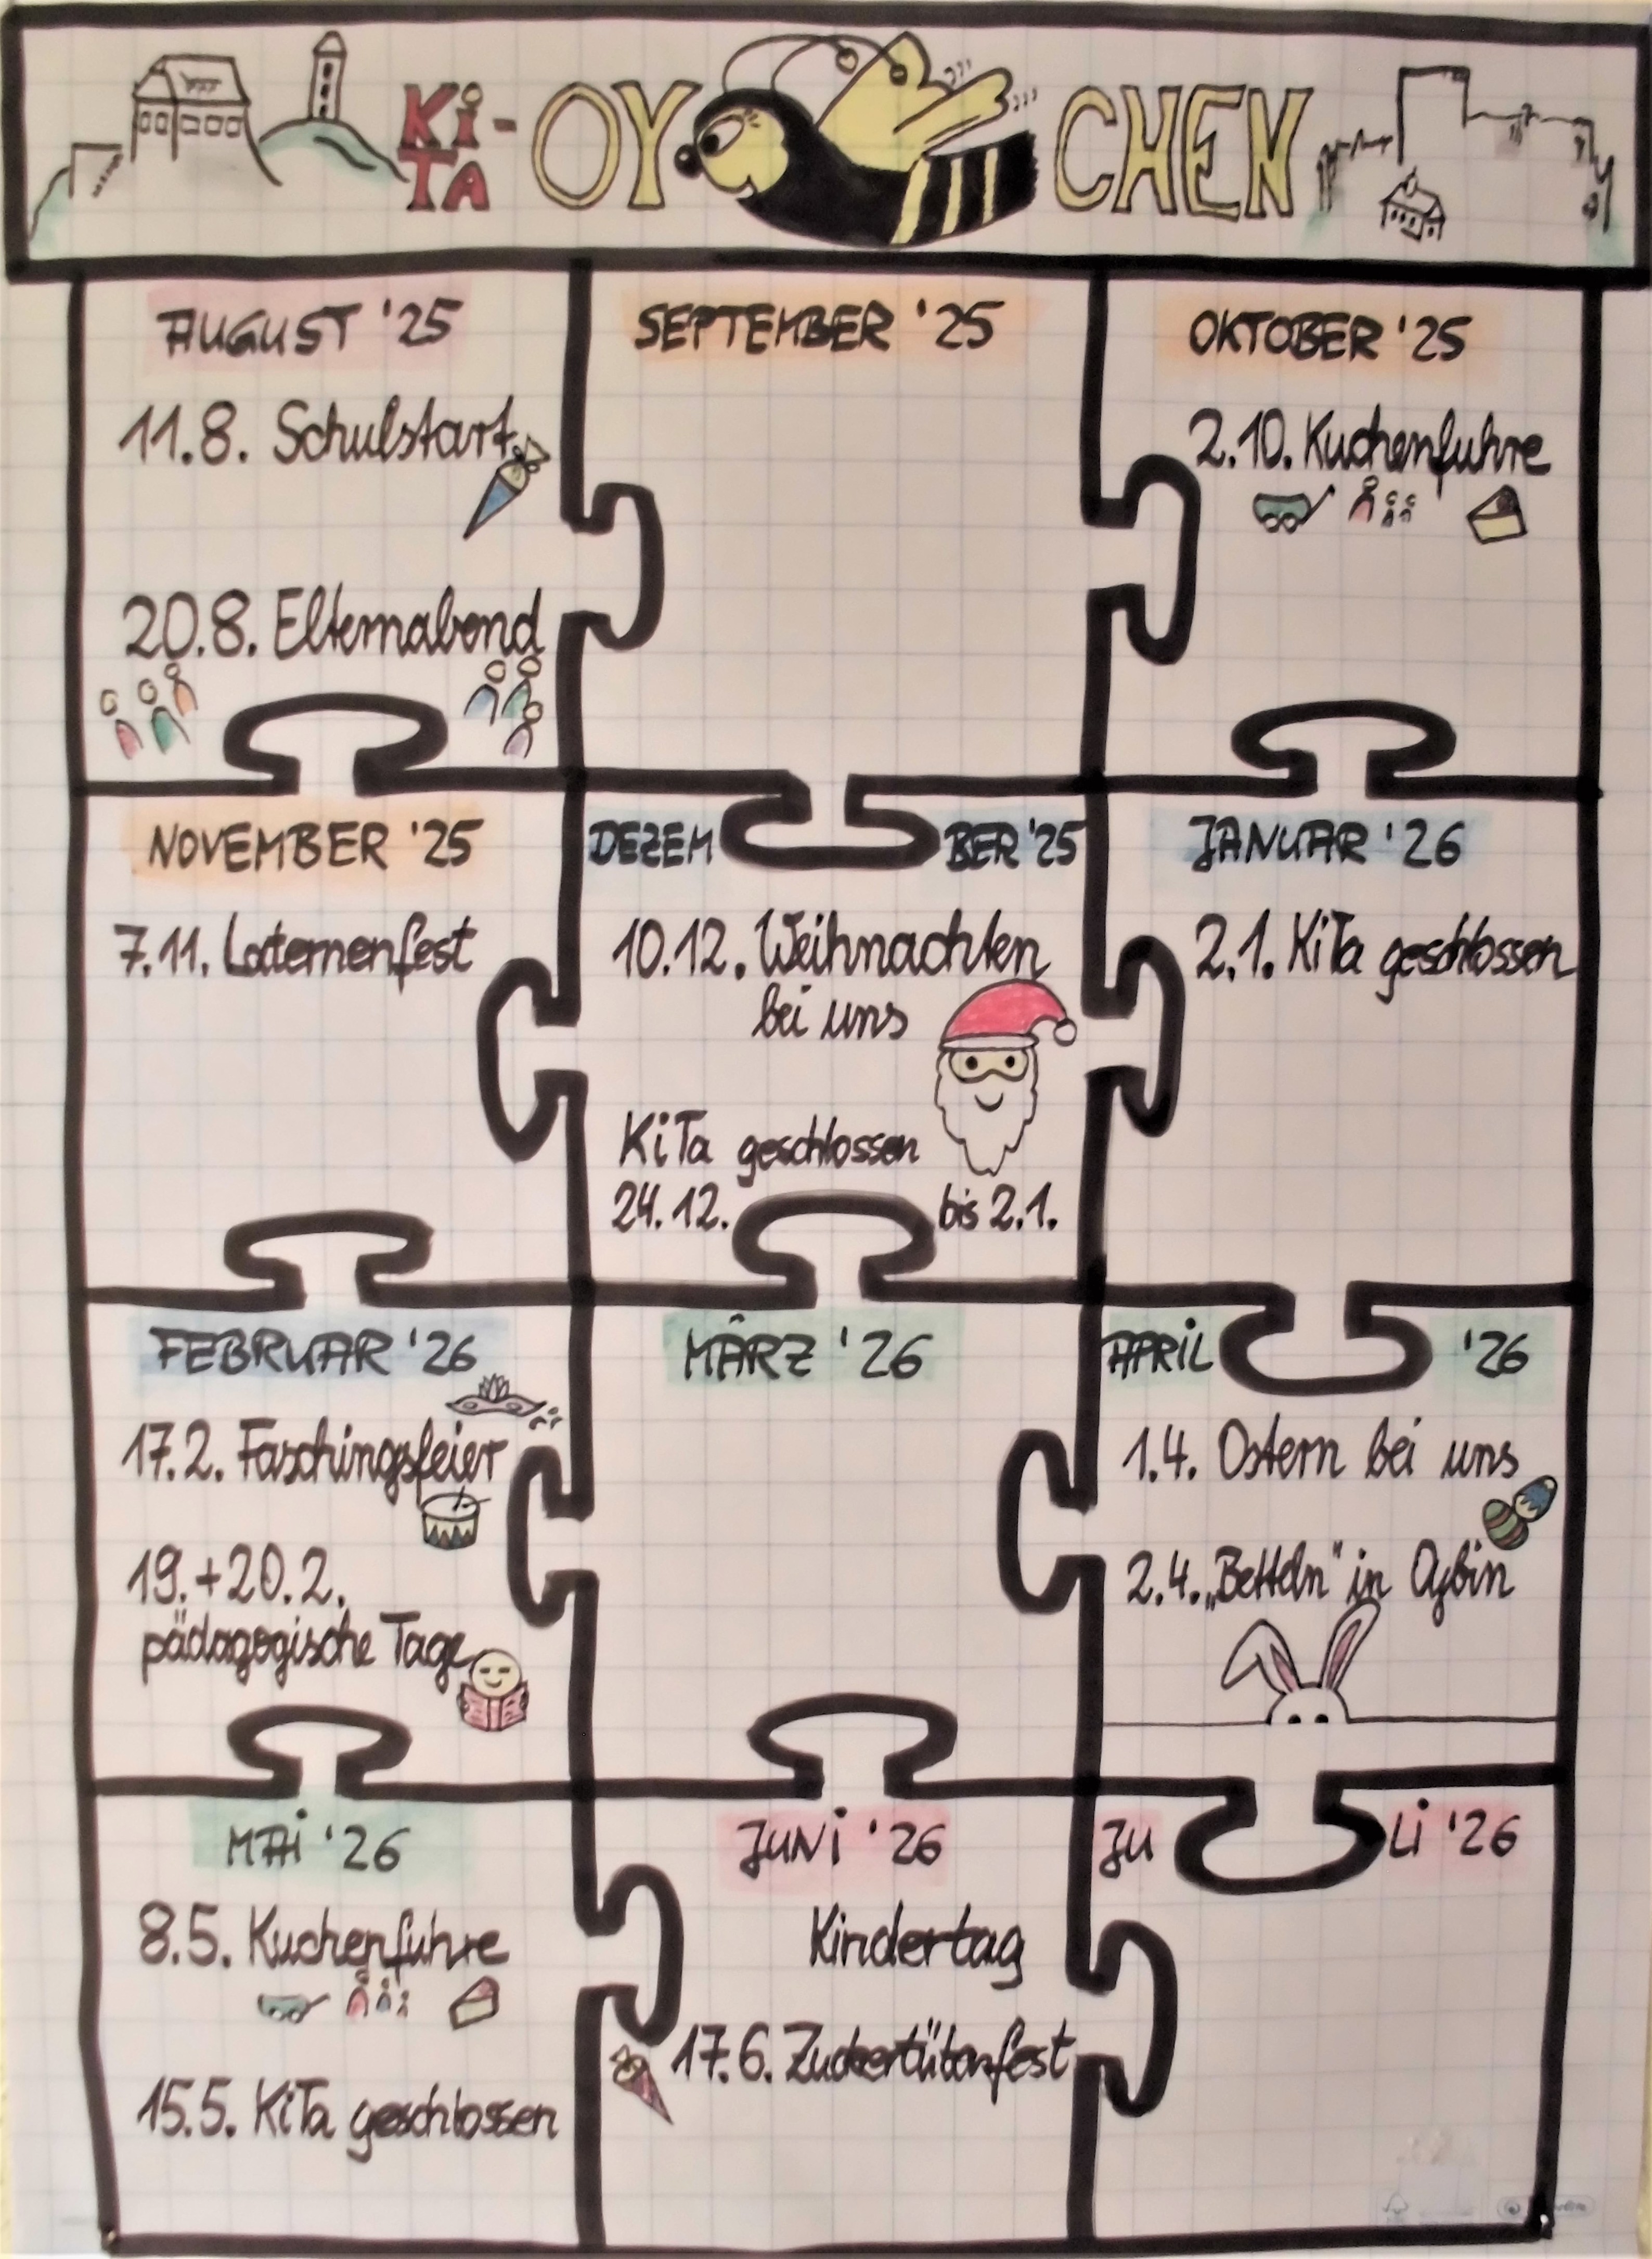 KiTA-OY CHEN
AUGUST '25
11.8. Schulstart
20.8. Elternabend
SEPTEMBER '25
OKTOBER '25
2.10. Kuchenfuhre
NOVEMBER '25
7.11. Laternenfest
DEZEM BER '25
10.12. Weihnachten
bei uns
KiTa geschlossen
24.12. bis 2.1.
JANUAR '26
2.1. KiTa geschlossen
FEBRUAR '26
17.2. Faschingsfeier
19.+20.2.
pädagogische Tage
MÄRZ '26
APRiL '26
1.4. Ostern bei uns
2.4. „Betteln" in Oybin
MAi '26
8.5. Kuchenfuhre
15.5. KiTa geschlossen
JUNi '26
Kindertag
17.6. Zuckertütenfest
JU Li '26